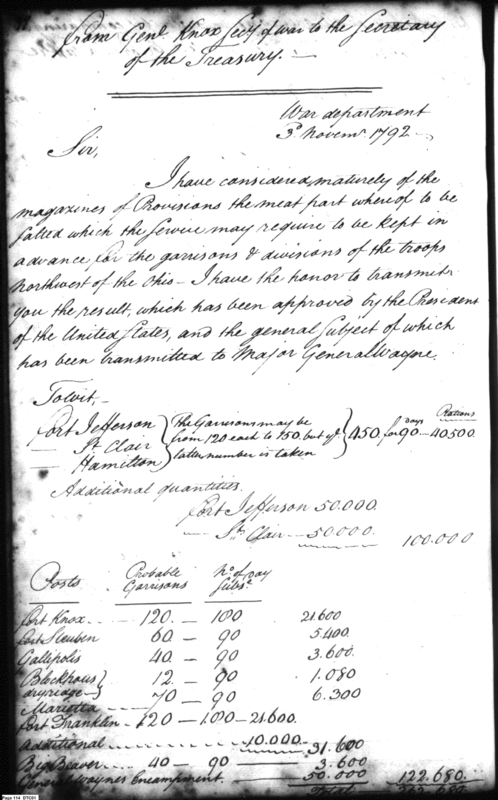 From Genl Knox Secy of war to the Secretary
of the Treasury.—
War department
3d Novemr 1792
Sir,
I have considered maturely of the
magazines of Provisions the meat part whereof to be
salted which the service may require to be kept in
advance for the garrisons & divisions of the troops
northwest of the Ohio — I have the honor to transmit
you the result, which has been approved by the President
of the United States, and the general subject of which
has been transmitted to Major General Wayne.
Towit,—
Rations
Fort Jefferson } The Garrisons may be
— St Clair } from 120 each to 150. but ye } 450. for 90 days — 40.500.
— Hamilton } latter number is taken
Additional quantities.
Fort Jefferson 50.000.
— St Clair — 50.000. 100.000
Posts Probable Garrisons No of day Subse
Fort Knox — 120. — 180 21.600
Fort Steuben 60 — 90 5.400.
Gallipolis 40 — 90 3.600.
Blockhous } 12 — 90 1.080
dry ridge — }
Marietta 70 — 90 6.300
Fort Franklin — 120 — 180 — 21.600.
Additional 10.000 — 31.600
Big Beaver 40 — 90 3.600
General Waynes Encampment. 50.000 122.680.
Total
Page 114